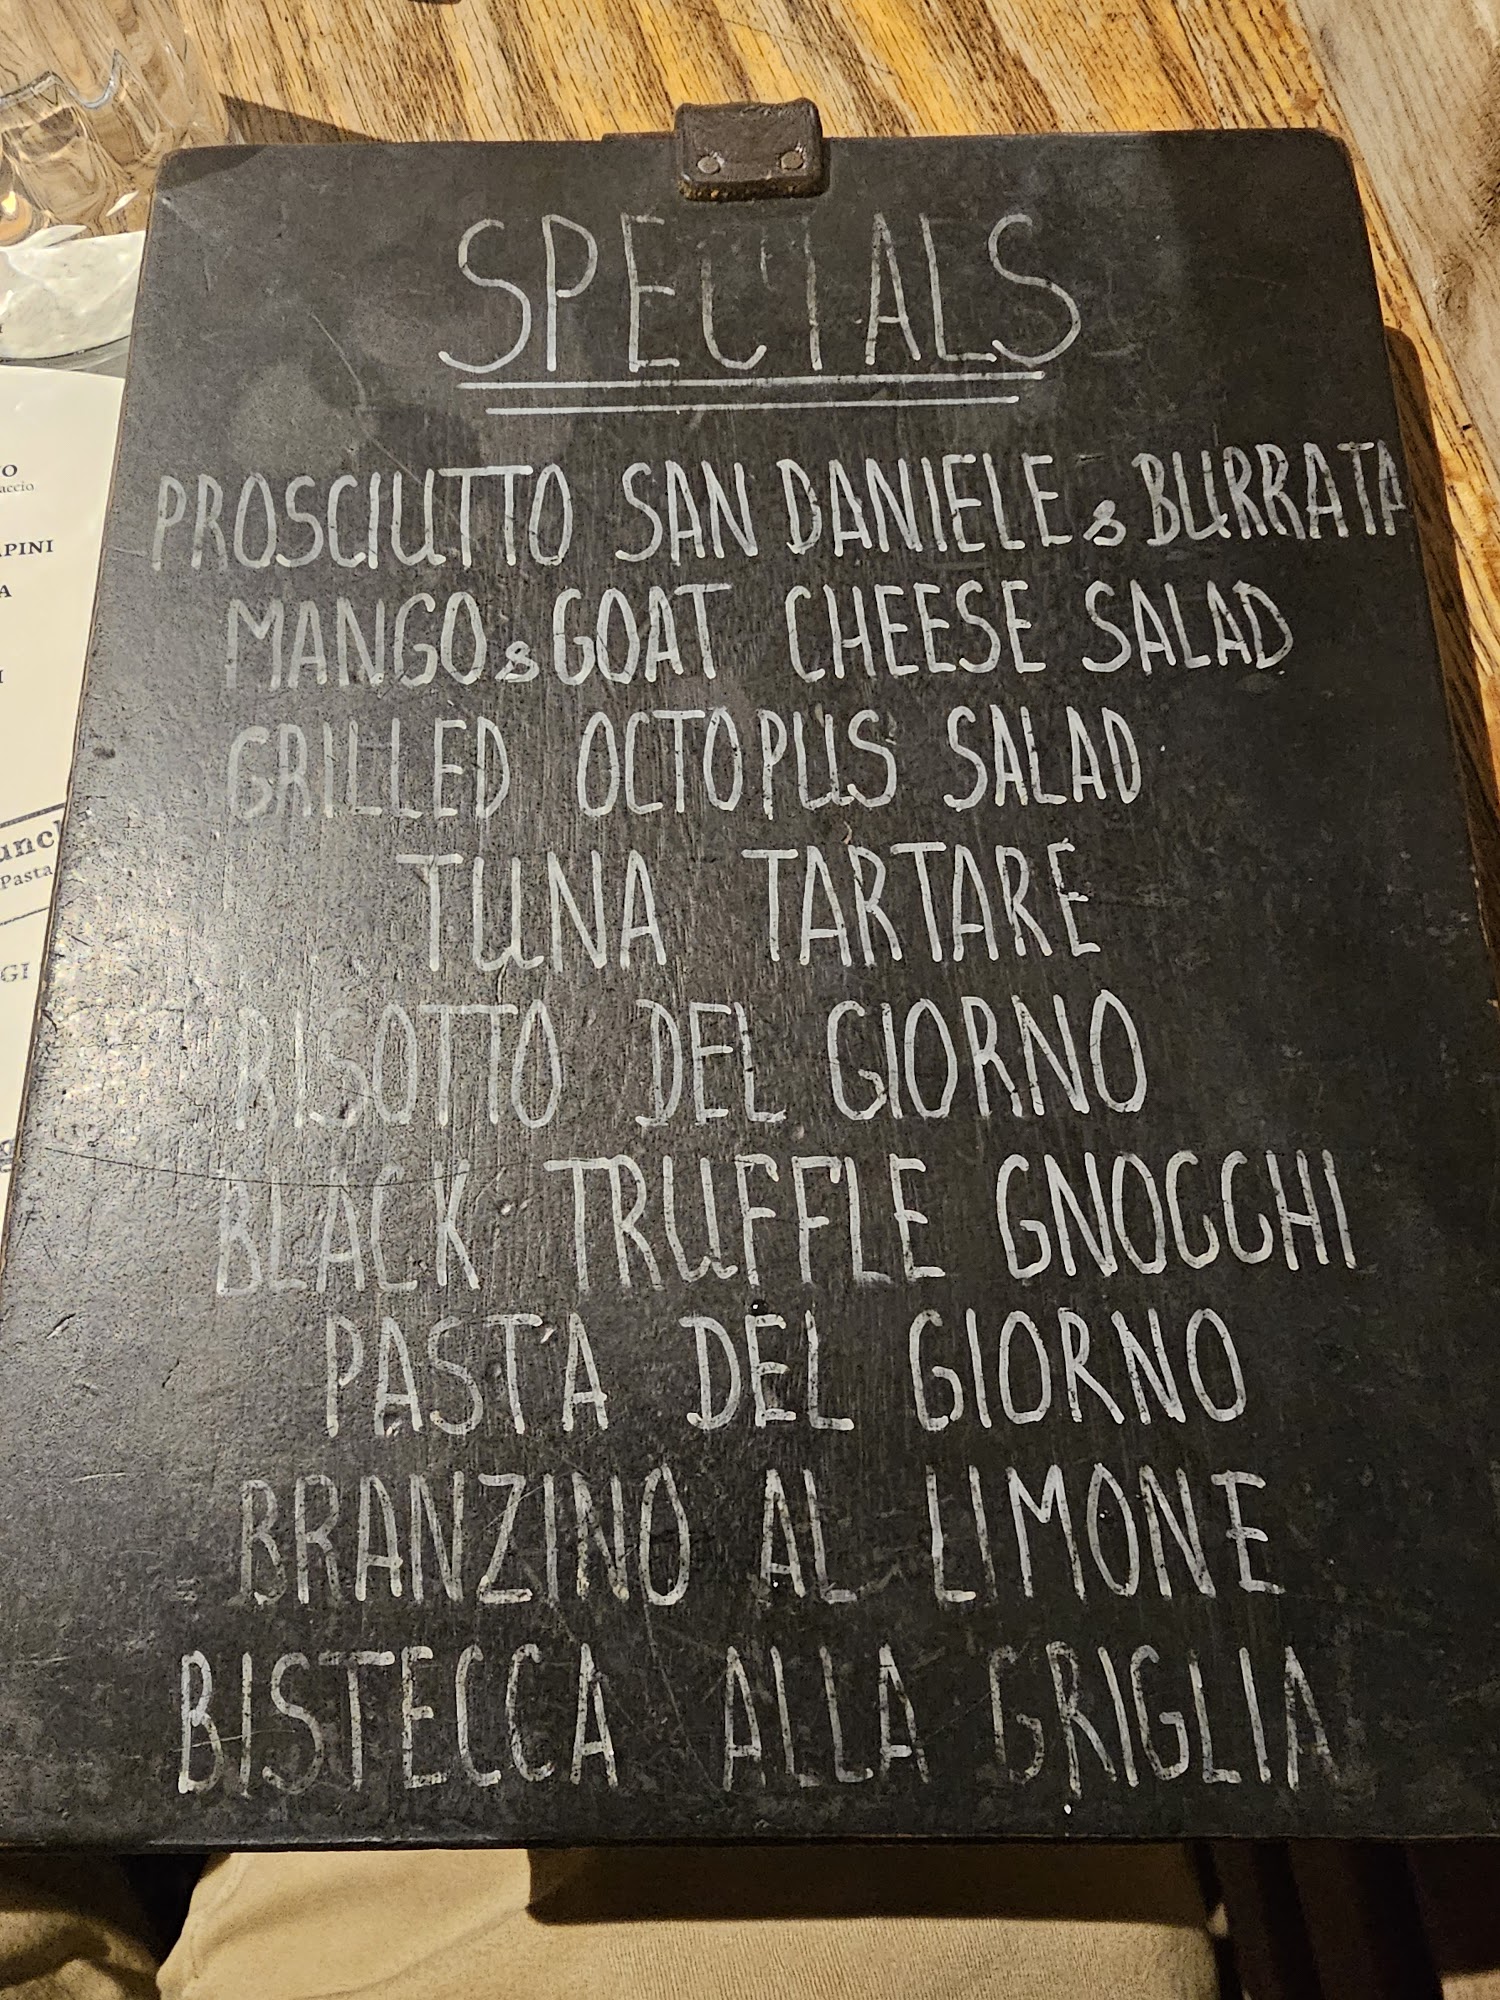 SPECIALS
PROSCIUTTO SAN DANIELE & BURRATA
MANGO & GOAT CHEESE SALAD
GRILLED OCTOPUS SALAD
TUNA TARTARE
RISOTTO DEL GIORNO
BLACK TRUFFLE GNOCCHI
PASTA DEL GIORNO
BRANZINO AL LIMONE
BISTECCA ALLA GRIGLIA
Pasta